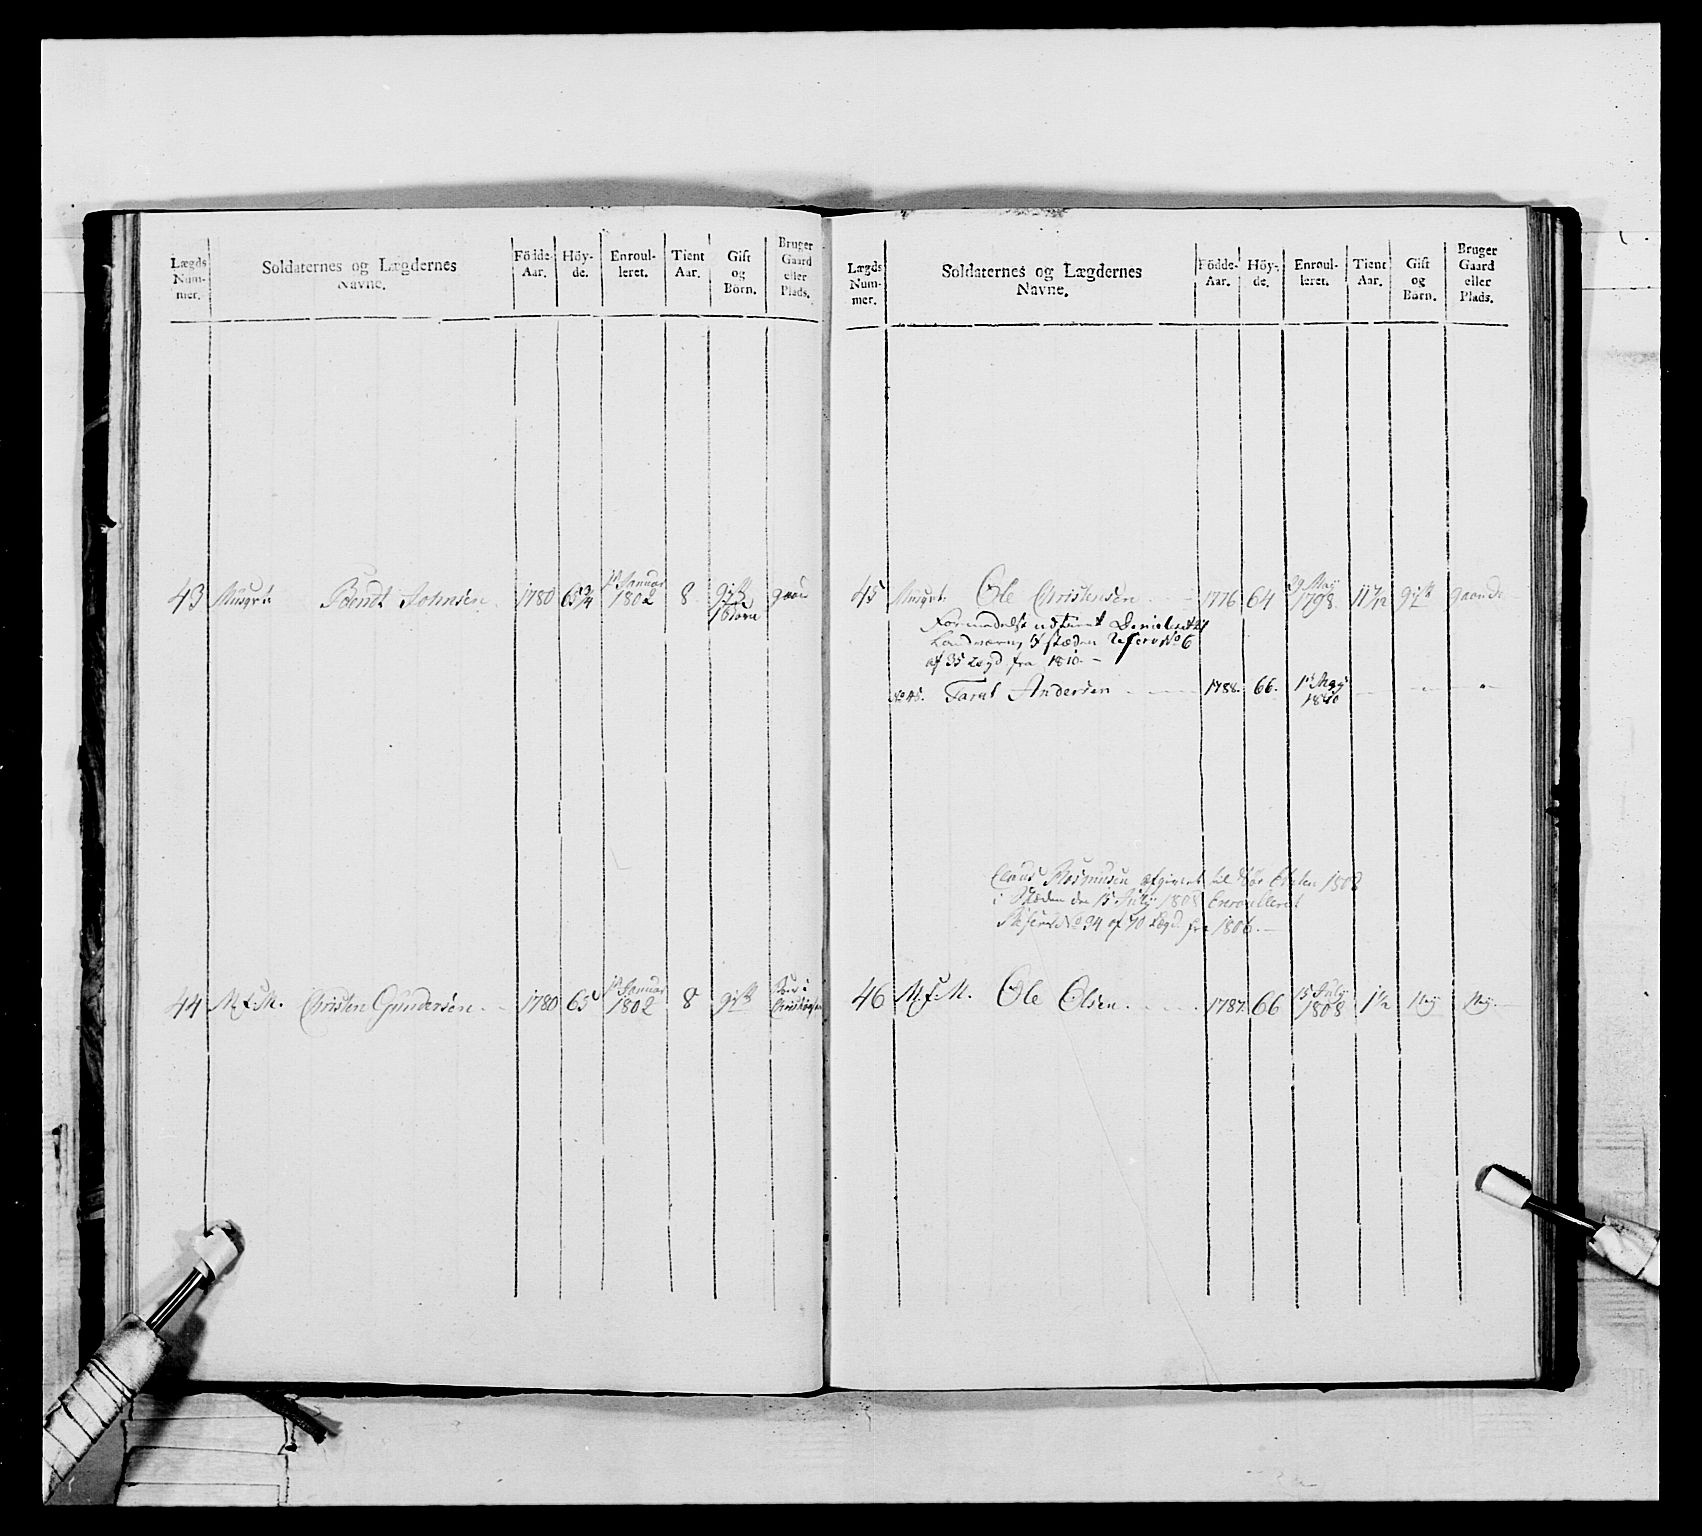 Lægds Num- mer.
Soldaternes og Lægdernes Navne.
Födde- Aar.
Höy- de.
Enroul- leret.
Tient Aar.
Gift og Börn.
Bruger Gaard eller Plads.
43 Musqvt: Bendt Johnsen. 1780 65 3/4 1st Januar 1802 8 gift 1 Barn gaard
44 M.f.M. Christen Gundersen. 1780 65 1st Januar 1802 8 gift
Lægds Num- mer.
Soldaternes og Lægdernes Navne.
Födde- Aar.
Höy- de.
Enroul- leret.
Tient Aar.
Gift og Börn.
Bruger Gaard eller Plads.
45 Musqvt. Ole Christensen 1776 64 29 May 1798. 11 7/12 gift gaard
Formedelst udtient
Landværn, I stæden Reserve No 6
af 35 Lægd fra 1810. -
No 45. Andersen 1788. 66. 1st May 1810
Claus Rasmusen afgivet til 1808
i Stæden den 15 July 1808 Enroulleret
Reserve No 34 af 40 Lægd fra 1806. -
46 M.f.M. Ole Olsen. 1787. 66 15 July 1808 1 1/2 Ney Ney.